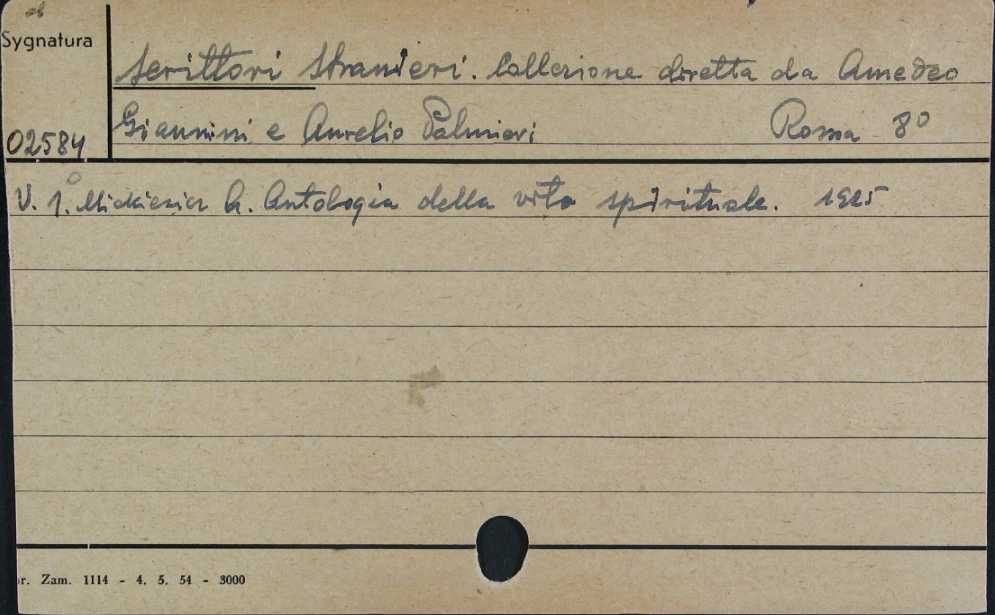 Sygnatura
Scrittori Stranieri. Collezione diretta da Amedeo
02584 Giannini e Aurelio Palmieri Roma 8º
V. 1º Mickiewicz A. Antologia della vita spirituale. 1925
r. Zam. 1114 - 4. 5. 54 - 3000